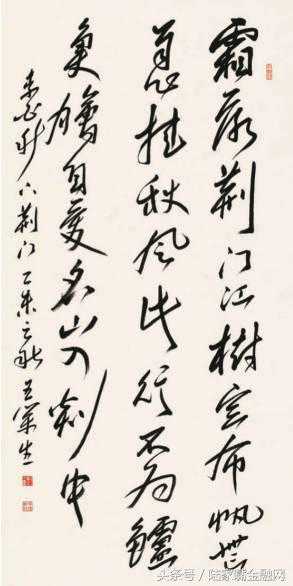 霜落荆门江樹空布帆無
恙挂秋风此行不为鱸
魚鱠自愛名山入剡中
李白秋下荆门 乙未之秋
头条号 / 陆家嘴金融网